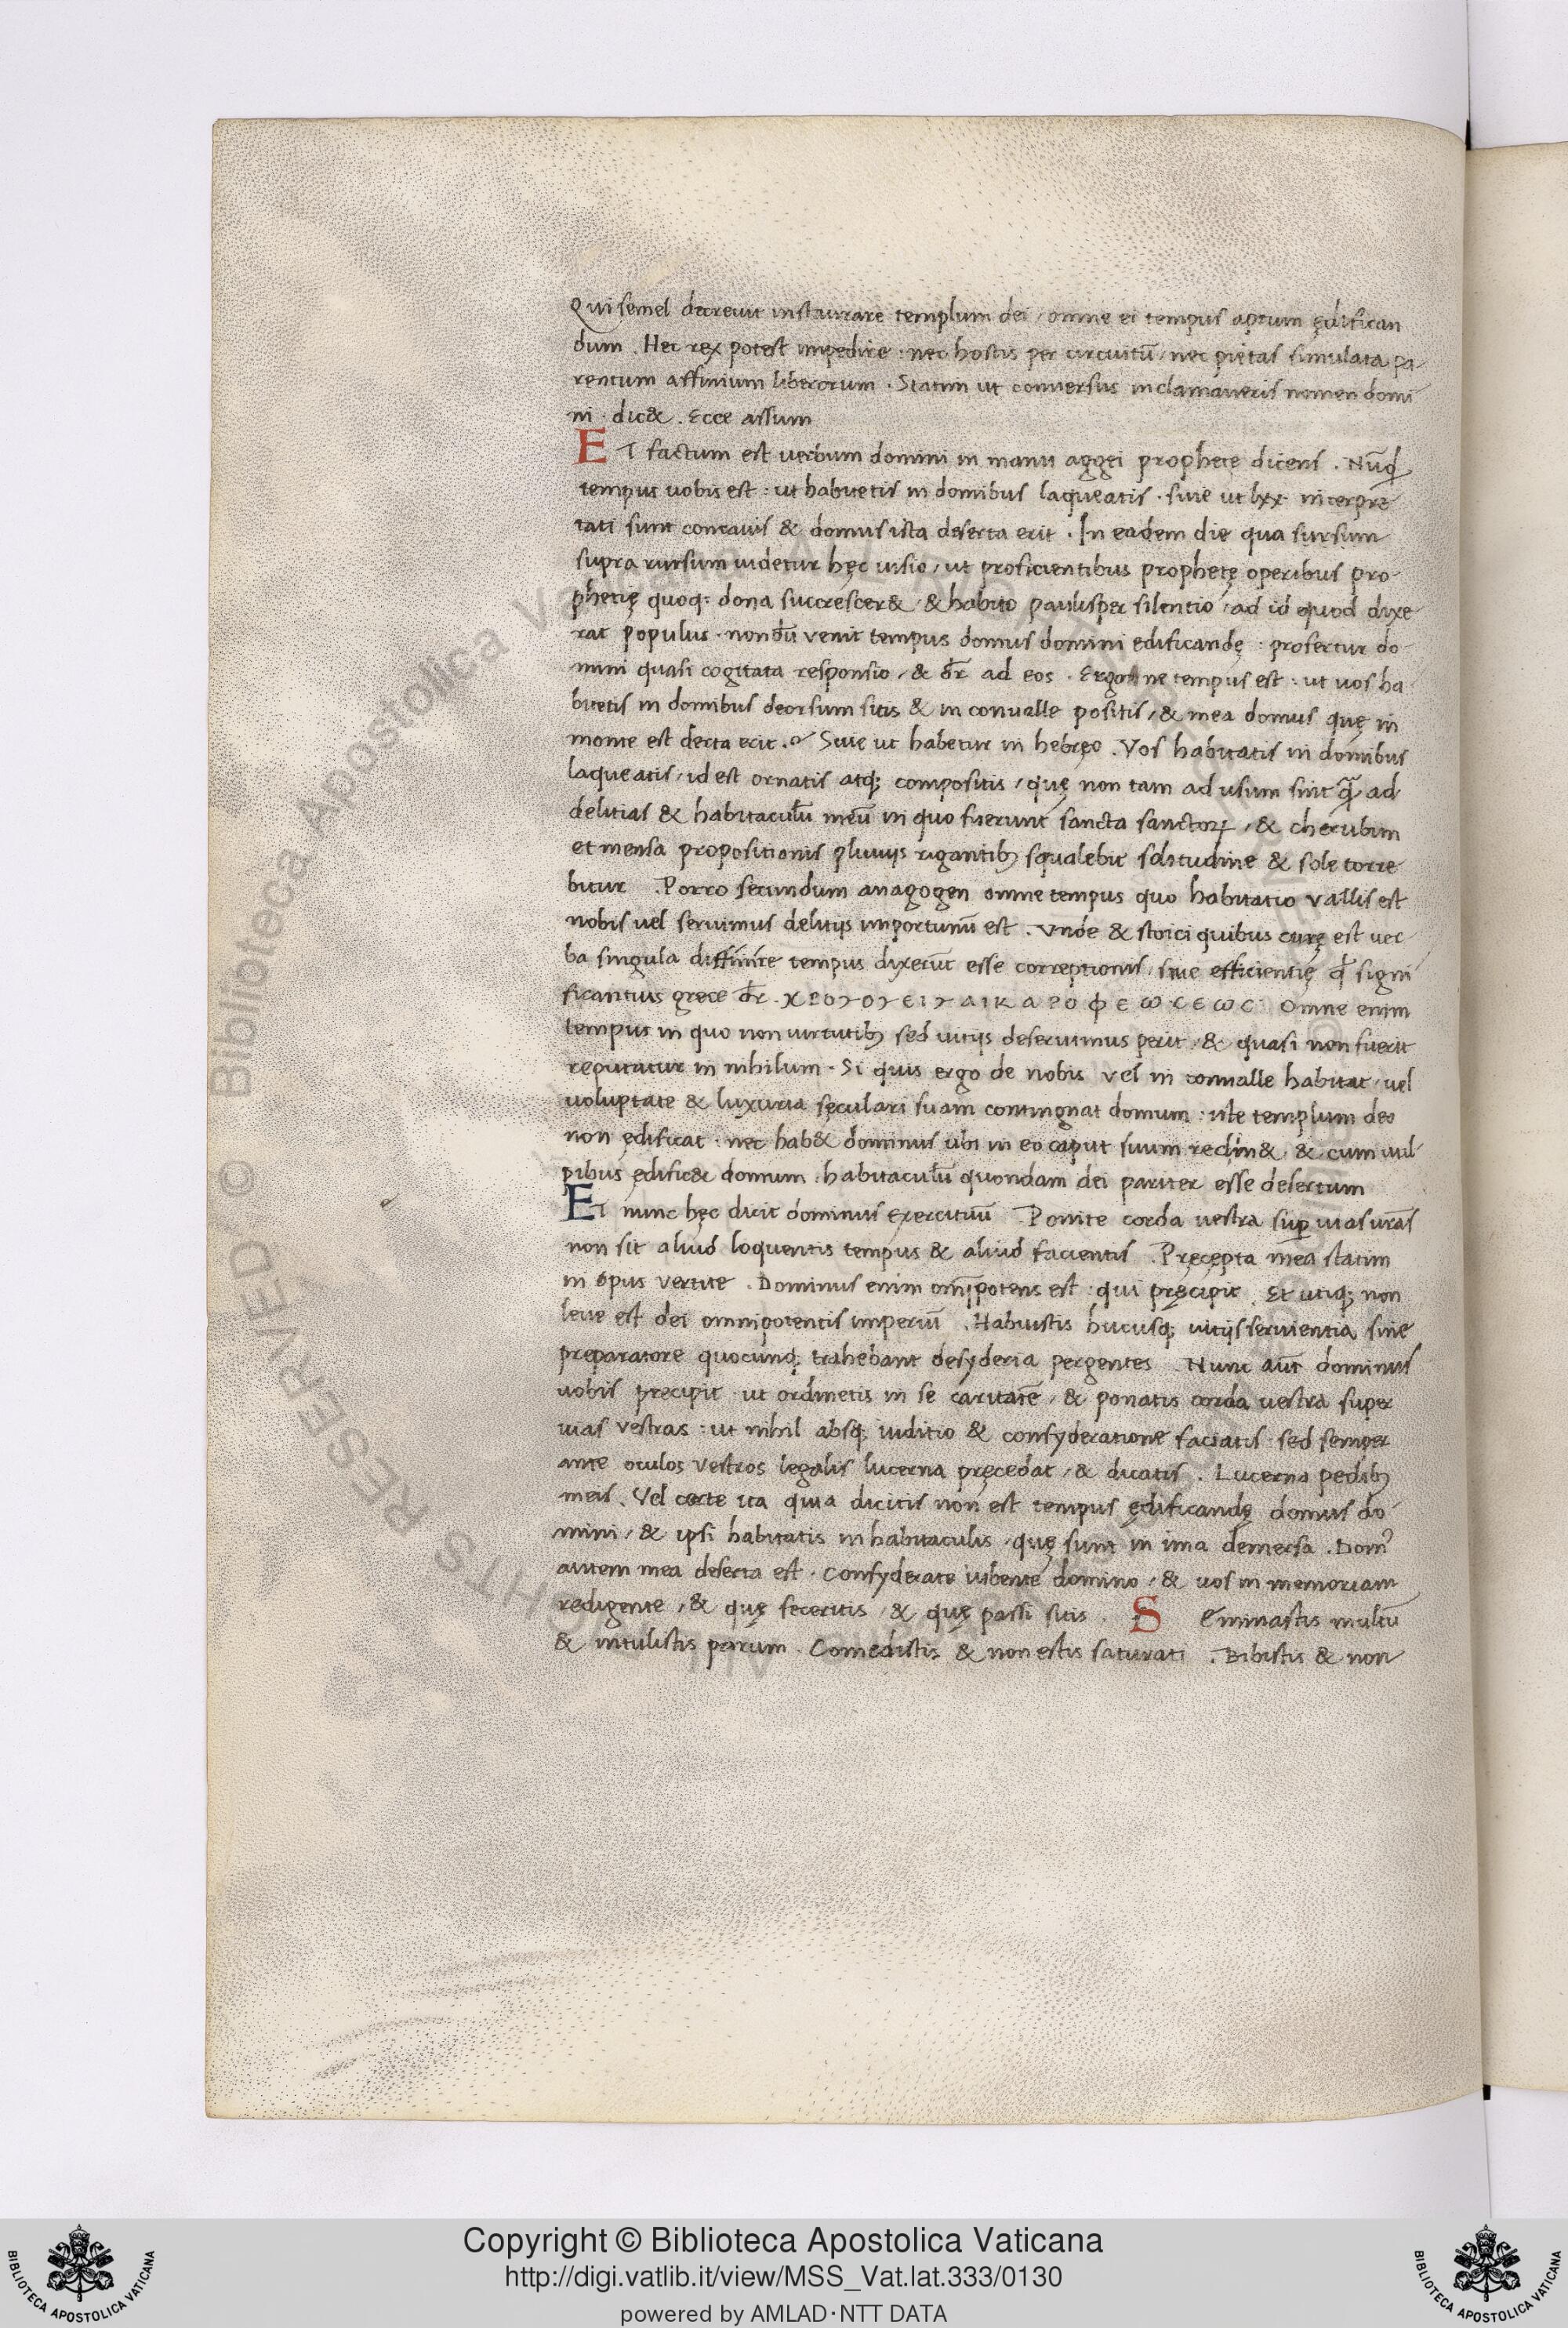 Qui semel decreuit instaurare templum dei / omne ei tempus aptum ędifican
dum . Nec rex potest impedire : nec hostis per circuitū / nec pietas simulata pa-
rentum affinium liberorum . Statim ut conuersus inclamaueris nomen domi
ni . dic& . Ecce assum
ET factum est uerbum domini in manu aggei prophetę dicens . Nūq̄
tempus uobis est : ut habitetis in domibus laqueatis . siue ut lxx interpre
tati sunt concauis & domus ista deserta erit . In eadem die qua sursum
supra rursum uidetur hęc uisio / ut proficientibus prophetę operibus pro-
phetię quoq; dona succrescer& / & habito paulisper silentio / ad id quod dixe
rat populus . nondū venit tempus domus domini edificandę : profertur do-
mini quasi cogitata responsio / & dr̄ ad eos . Ergo ne tempus est : ut uos ha
bitetis in domibus deorsum sitis & in conualle positis / & mea domus quę in
monte est derta erit . Siue ut habetur in hebręo . Vos habitatis in domibus
laqueatis / id est ornatis atq; compositis / quę non tam ad usum sint q̄ ad
delitias & habitaculū meū in quo fuerunt sancta sanctoꝝ / & cherubim
et mensa propositionis pluuijs rigantibꝫ squalebit solitudine & sole torre
bitur . Porro secundum anagogen omne tempus quo habitatio vallis est
nobis uel seruimus delitijs importunū est . Vnde & stoici quibus curę est uer
ba singula diffinire tempus dixerūt esse correptionis / siue efficientię q̄ signi
ficantius grece dr̄ .
Omne enim
tempus in quo non uirtutibꝫ sed uitijs deseruimus perit / & quasi non fuerit
reputatur in nihilum . Si quis ergo de nobis vel in conualle habitat / uel
voluptate & luxuria sęculari suam contingnat domum : iste templum deo
non ędificat . nec hab& dominus ubi in eo caput suum reclin& & cum uul
pibus ędific& domum . habitaculū quondam dei pariter esse desertum
ET nunc hęc dicit dominus exercituū Ponite corda uestra suꝑ uias urās
non sit aliud loquentis tempus & aliud facientis . Pręcepta mea statim
in opus vertite . Dominus enim omīpotens est : qui pręcipit . Et utiq; non
leue est dei omnipotentis imperiū . Habuistis hucusq; uitijs seruientia siue
preparatore quocunq; trahebant desyderia pergentes . Nunc aūt dominus
uobis precipit ut ordinetis in se caritatē / & ponatis corda uestra super
uias vestras : ut nihil absq; iuditio & consyderatione faciatis . sed semper
ante oculos vestros legalis lucerna pręcedat / & dicatis . Lucerna pedibꝫ
meis . Vel certe ita quia dicitis non est tempus ędificandę domus do
mini / & ipsi habitatis in habitaculis / quę sunt in ima demersa . Domꝰ
autem mea deserta est . Consyderate iubente domino / & uos in memoriam
redigente / & quę feceritis / & quę passi sitis . Seminastis multū
& intulistis parum . Comedistis & non estis saturati . Bibistis & non
Copyright © Biblioteca Apostolica Vaticana
http://digi.vatlib.it/view/MSS_Vat.lat.333/0130
powered by AMLAD·NTT DATA
BIBLIOTECA APOSTOLICA VATICANA
BIBLIOTECA APOSTOLICA VATICANA